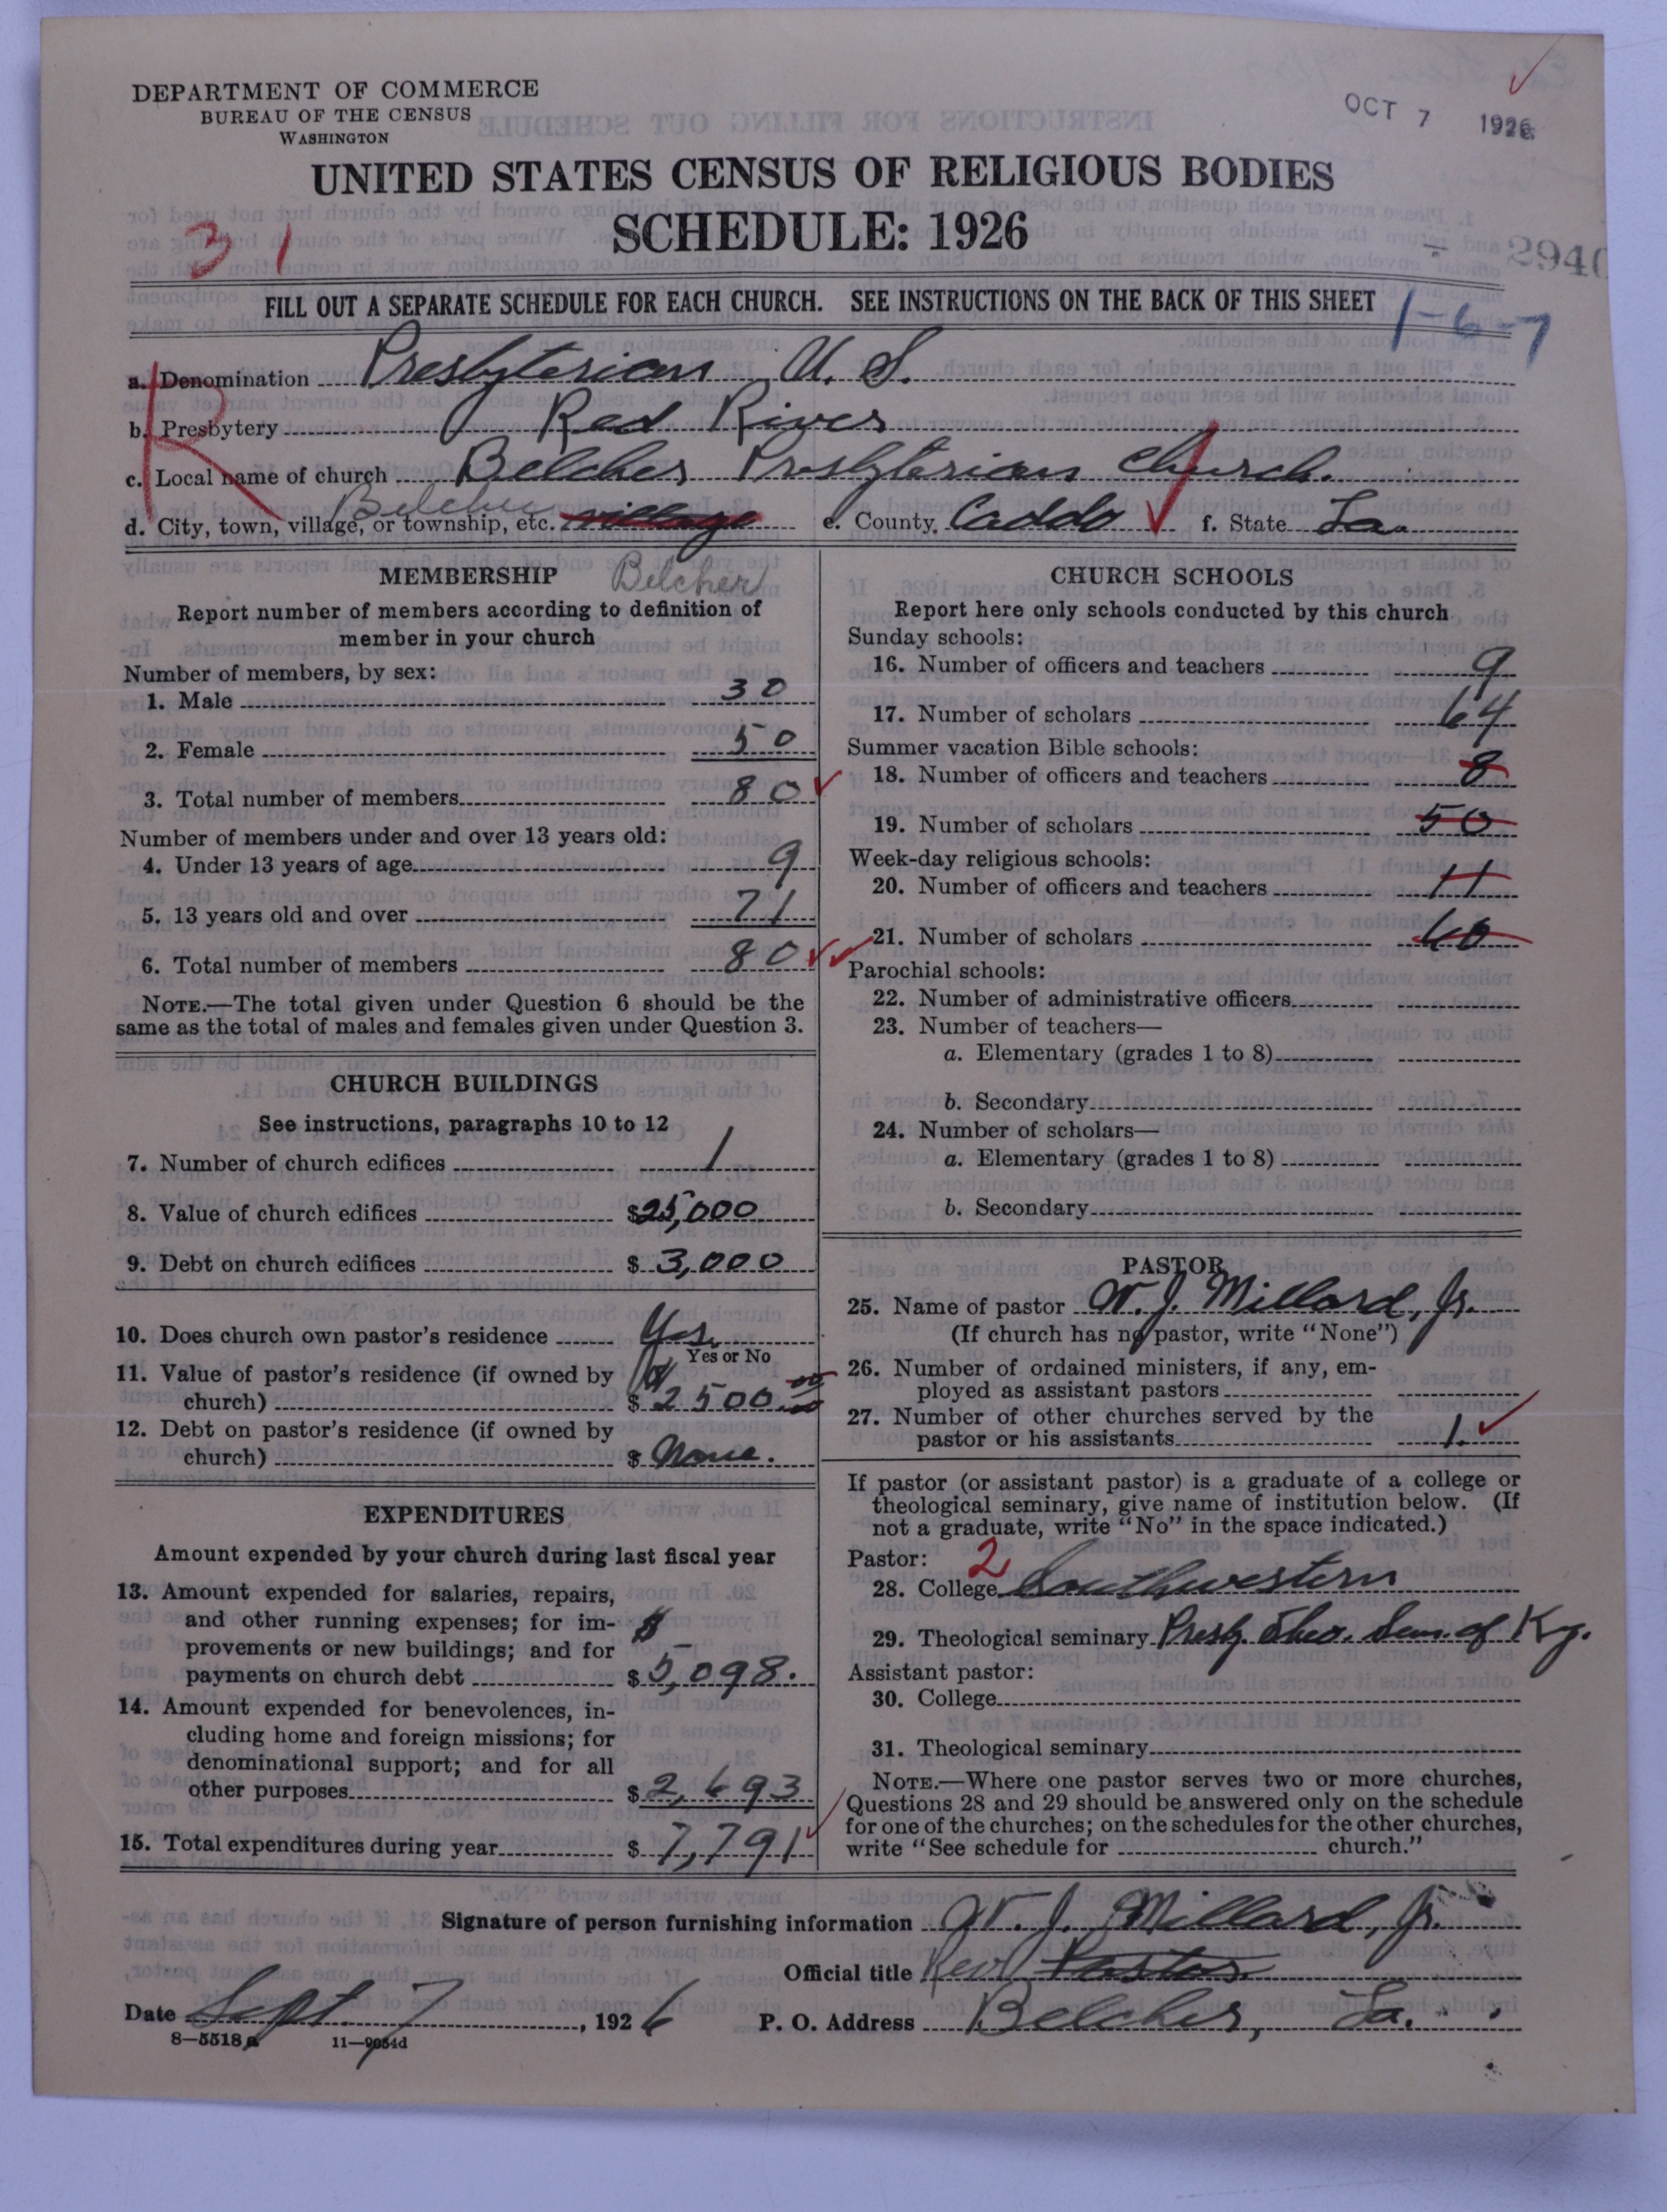 DEPARTMENT OF COMMERCE
BUREAU OF THE CENSUS
WASHINGTON
OCT 7 1926
UNITED STATES CENSUS OF RELIGIOUS BODIES
SCHEDULE: 1926
31
2940
FILL OUT A SEPARATE SCHEDULE FOR EACH CHURCH. SEE INSTRUCTIONS ON THE BACK OF THIS SHEET
1-6-7
R
a. Denomination Presbyterian U. S.
b. Presbytery Red River
c. Local name of church Belcher Presbyterian Church.
Belcher
d. City, town, village, or township, etc. village e. County Caddo f. State La.
MEMBERSHIP Belcher
Report number of members according to definition of
member in your church
Number of members, by sex:
1. Male 30
2. Female 50
3. Total number of members 80
Number of members under and over 13 years old:
4. Under 13 years of age 9
5. 13 years old and over 71
6. Total number of members 80
NOTE.—The total given under Question 6 should be the
same as the total of males and females given under Question 3.
CHURCH BUILDINGS
See instructions, paragraphs 10 to 12
7. Number of church edifices 1
8. Value of church edifices $25,000
9. Debt on church edifices $ 3,000
10. Does church own pastor's residence Yes.
Yes or No
11. Value of pastor's residence (if owned by
church) $ 2500.00
12. Debt on pastor's residence (if owned by
church) $ None.
EXPENDITURES
Amount expended by your church during last fiscal year
13. Amount expended for salaries, repairs,
and other running expenses; for im-
provements or new buildings; and for
payments on church debt $ 5,098.
14. Amount expended for benevolences, in-
cluding home and foreign missions; for
denominational support; and for all
other purposes $ 2,693
15. Total expenditures during year $ 7,791
CHURCH SCHOOLS
Report here only schools conducted by this church
Sunday schools:
16. Number of officers and teachers 9
17. Number of scholars 64
Summer vacation Bible schools:
18. Number of officers and teachers 8
19. Number of scholars 50
Week-day religious schools:
20. Number of officers and teachers 11
21. Number of scholars 60
Parochial schools:
22. Number of administrative officers
23. Number of teachers—
a. Elementary (grades 1 to 8)
b. Secondary
24. Number of scholars—
a. Elementary (grades 1 to 8)
b. Secondary
PASTOR
25. Name of pastor W. J. Millard, Jr.
(If church has no pastor, write "None")
26. Number of ordained ministers, if any, em-
ployed as assistant pastors
27. Number of other churches served by the
pastor or his assistants 1.
If pastor (or assistant pastor) is a graduate of a college or
theological seminary, give name of institution below. (If
not a graduate, write "No" in the space indicated.)
Pastor: 2
28. College Southwestern
29. Theological seminary Presby. Theo. Sem. of Ky.
Assistant pastor:
30. College
31. Theological seminary
NOTE.—Where one pastor serves two or more churches,
Questions 28 and 29 should be answered only on the schedule
for one of the churches; on the schedules for the other churches,
write "See schedule for church."
Signature of person furnishing information W. J. Millard, Jr.
Official title Rev. Pastor
Date Sept. 7, 1926 P. O. Address Belcher, La.
8—5518a 11—9034d